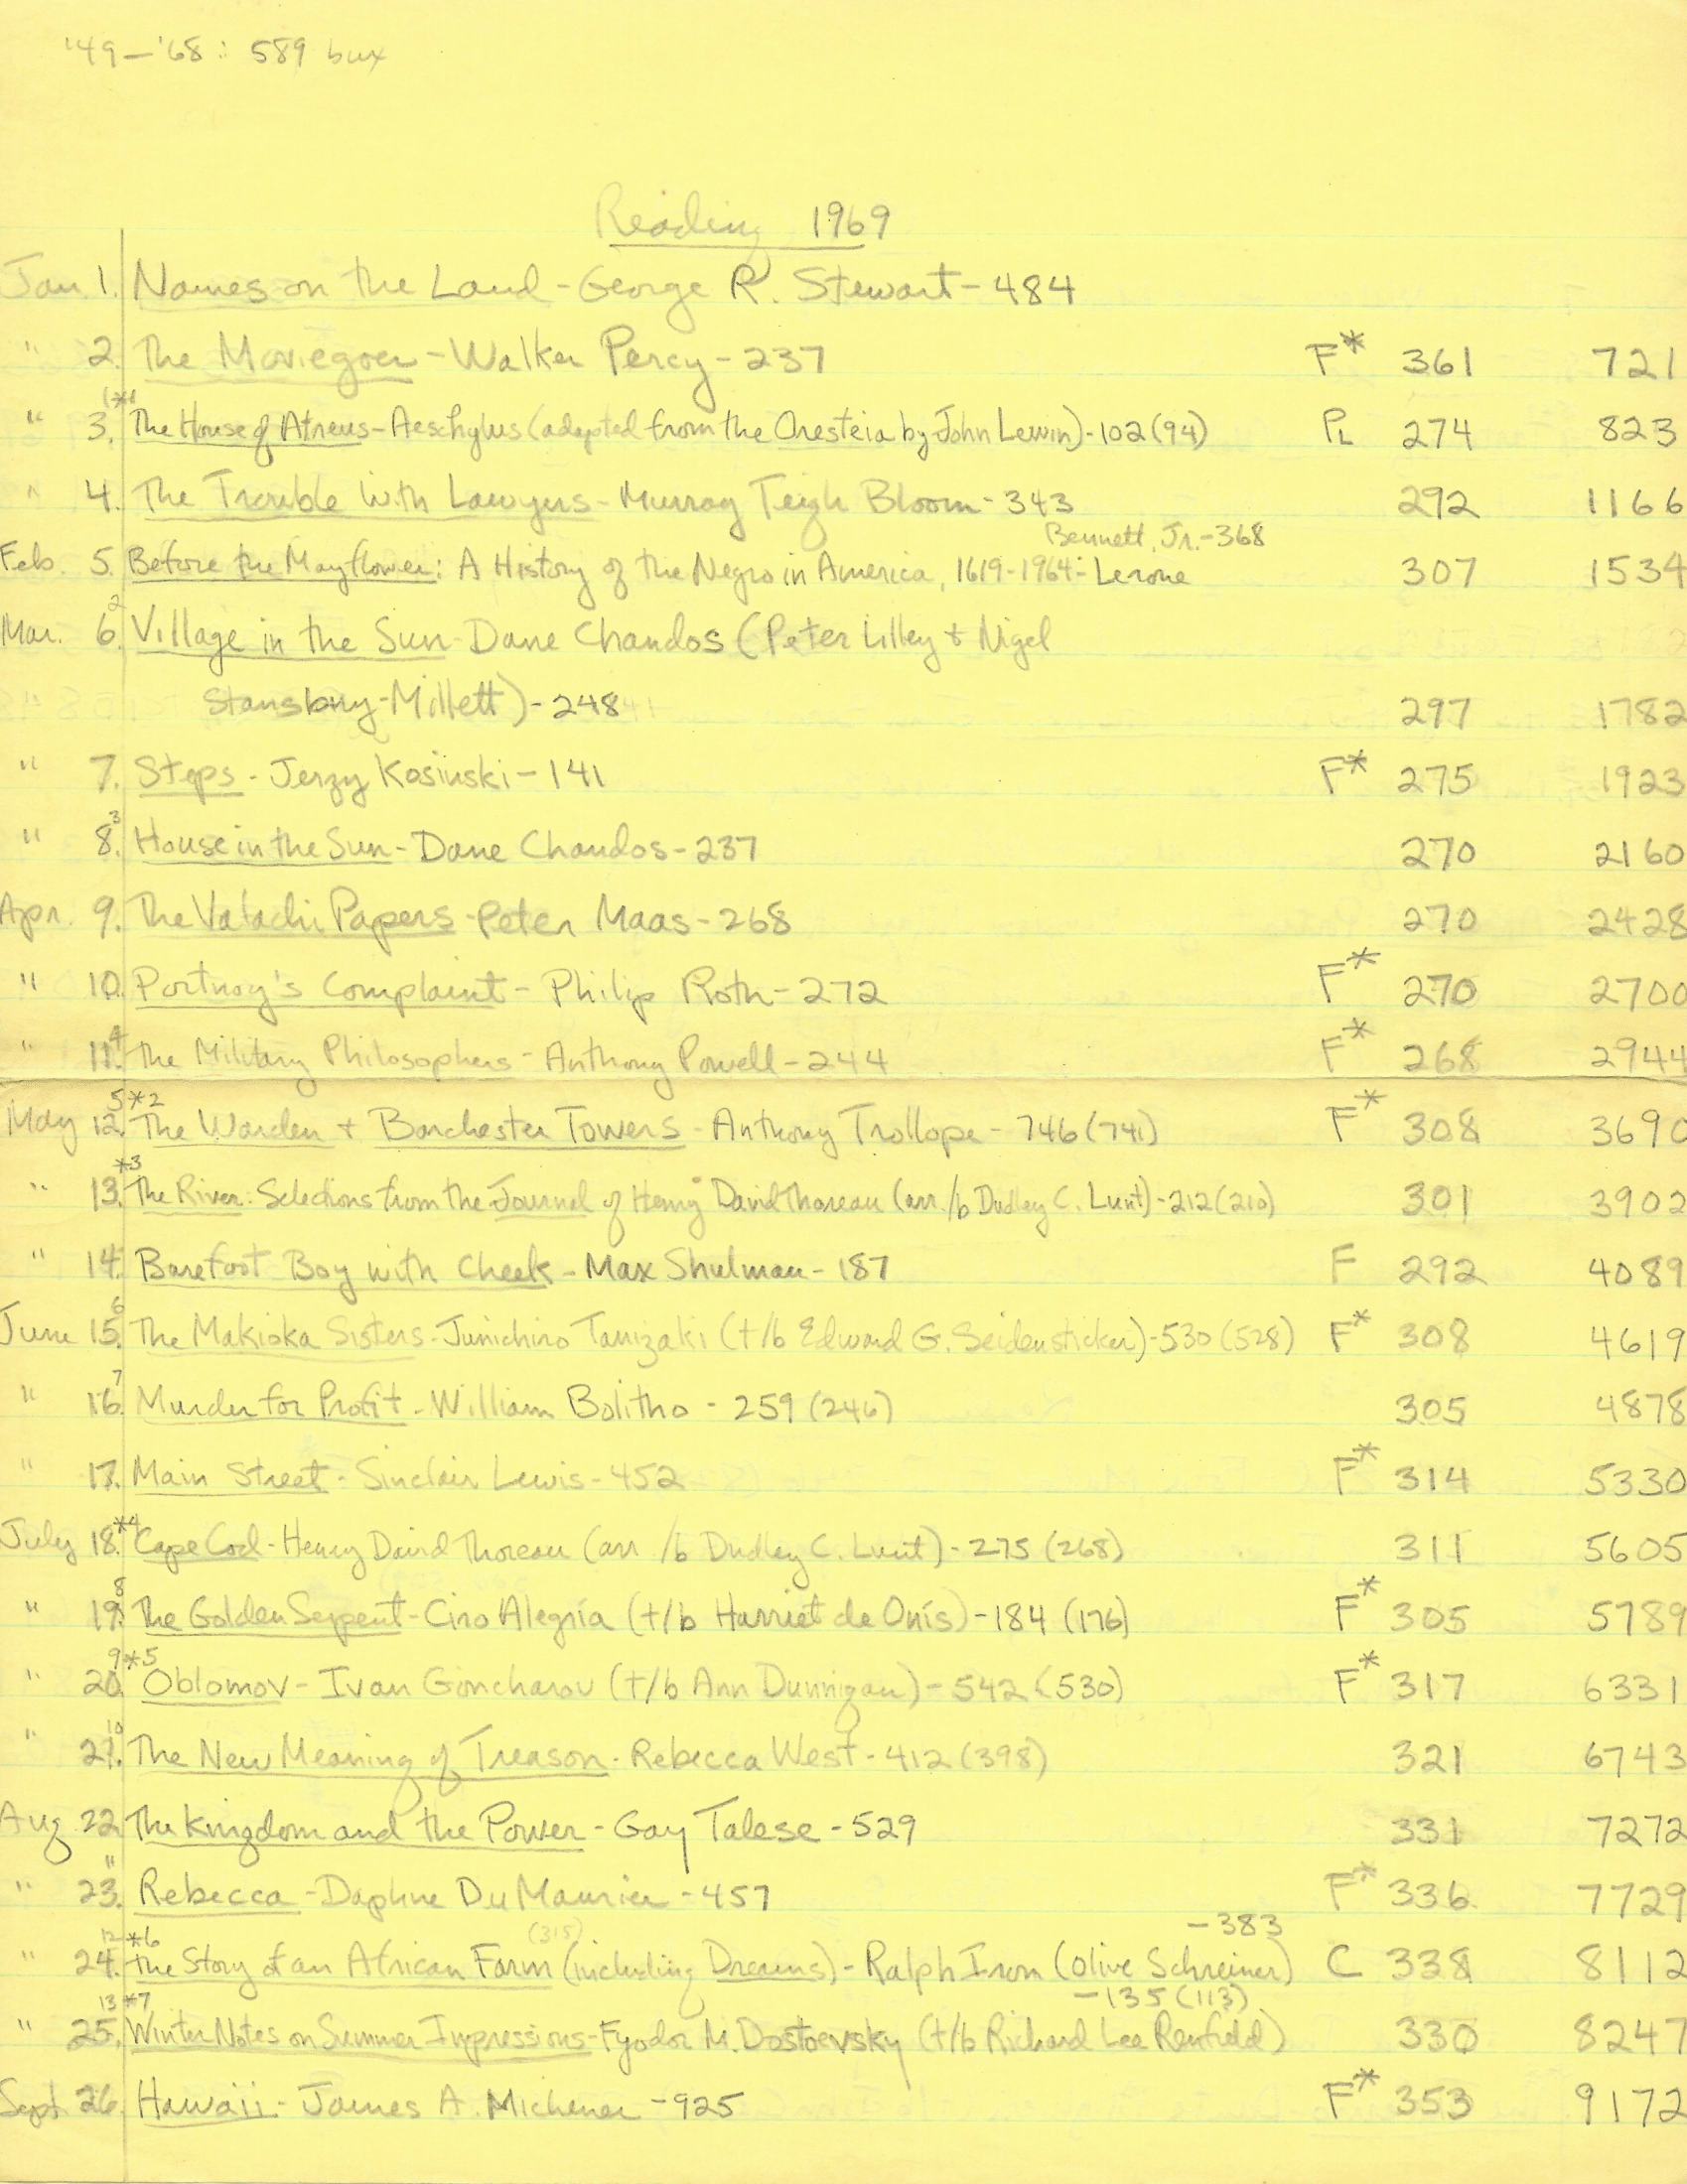 '49–'68: 589 bux
Reading 1969
Jan. 1. Names on the Land - George R. Stewart - 484
" 2. The Moviegoer - Walker Percy - 237 F* 361 721
" 3. *1 The House of Atreus - Aeschylus (adapted from the Oresteia by John Lewin) - 102 (94) PL 274 823
" 4. The Trouble with Lawyers - Murray Teigh Bloom - 343 292 1166
Bennett, Jr. - 368
Feb. 5. Before the Mayflower: A History of the Negro in America, 1619-1964 - Lerone 307 1534
Mar. 6. 2 Village in the Sun - Dane Chandos (Peter Lilley + Nigel
Stansbury-Millett) - 248 297 1782
" 7. Steps - Jerzy Kosinski - 141 F* 275 1923
" 8. 3 House in the Sun - Dane Chandos - 237 270 2160
Apr. 9. The Valachi Papers - Peter Maas - 268 270 2428
" 10. Portnoy's Complaint - Philip Roth - 272 F* 270 2700
" 11. 4 The Military Philosophers - Anthony Powell - 244 F* 268 2944
May 12. 5 *2 The Warden + Barchester Towers - Anthony Trollope - 746 (741) F* 308 3690
" 13. *3 The River: Selections from the Journal of Henry David Thoreau (arr. /b Dudley C. Lunt) - 212 (210) 301 3902
" 14. Barefoot Boy with Cheek - Max Shulman - 187 F 292 4089
June 15. 6 The Makioka Sisters - Junichiro Tanizaki (t/b Edward G. Seidensticker) - 530 (528) F* 308 4619
" 16. 7 Murder for Profit - William Bolitho - 259 (246) 305 4878
" 17. Main Street - Sinclair Lewis - 452 F* 314 5330
July 18. *4 Cape Cod - Henry David Thoreau (arr /b Dudley C. Lunt) - 275 (268) 311 5605
" 19. 8 The Golden Serpent - Ciro Alegría (t/b Harriet de Onís) - 184 (176) F* 305 5789
" 20. 9 *5 Oblomov - Ivan Goncharov (t/b Ann Dunnigan) - 542 (530) F* 317 6331
" 21. 10 The New Meaning of Treason - Rebecca West - 412 (398) 321 6743
Aug 22. The Kingdom and the Power - Gay Talese - 529 331 7272
" 23. 11 Rebecca - Daphne Du Maurier - 457 F* 336 7729
(315) - 383
" 24. 12 *6 The Story of an African Farm (including Dreams) - Ralph Iron (Olive Schreiner) C 338 8112
- 135 (113)
" 25. 13 *7 Winter Notes on Summer Impressions - Fyodor M. Dostoevsky (t/b Richard Lee Renfield) 330 8247
Sept 26. Hawaii - James A. Michener - 925 F* 353 9172